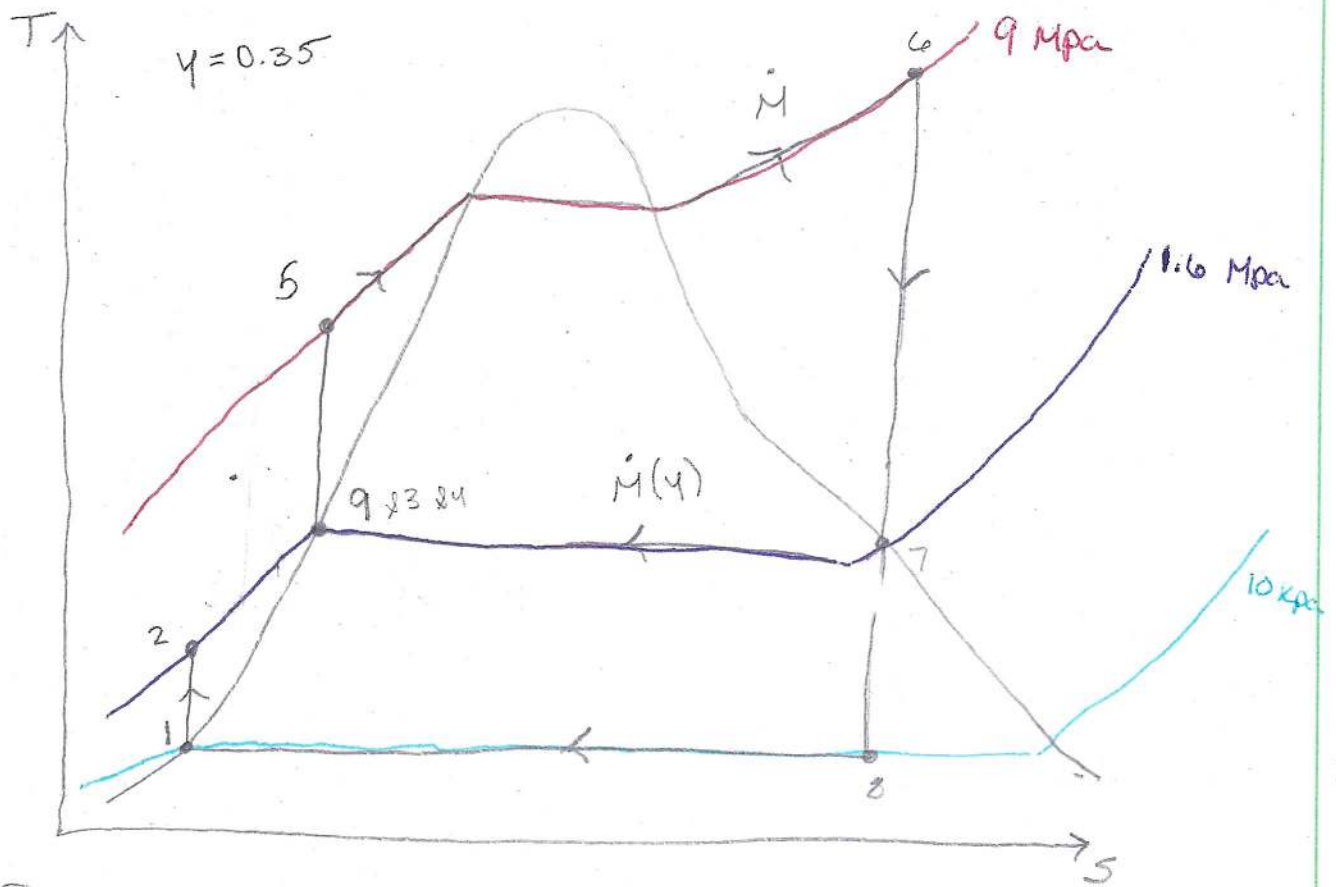 T
y = 0.35
6
9 Mpa
ṁ
5
1.6 Mpa
9 &3 &4
ṁ(y)
7
2
10 kpa
1
8
S